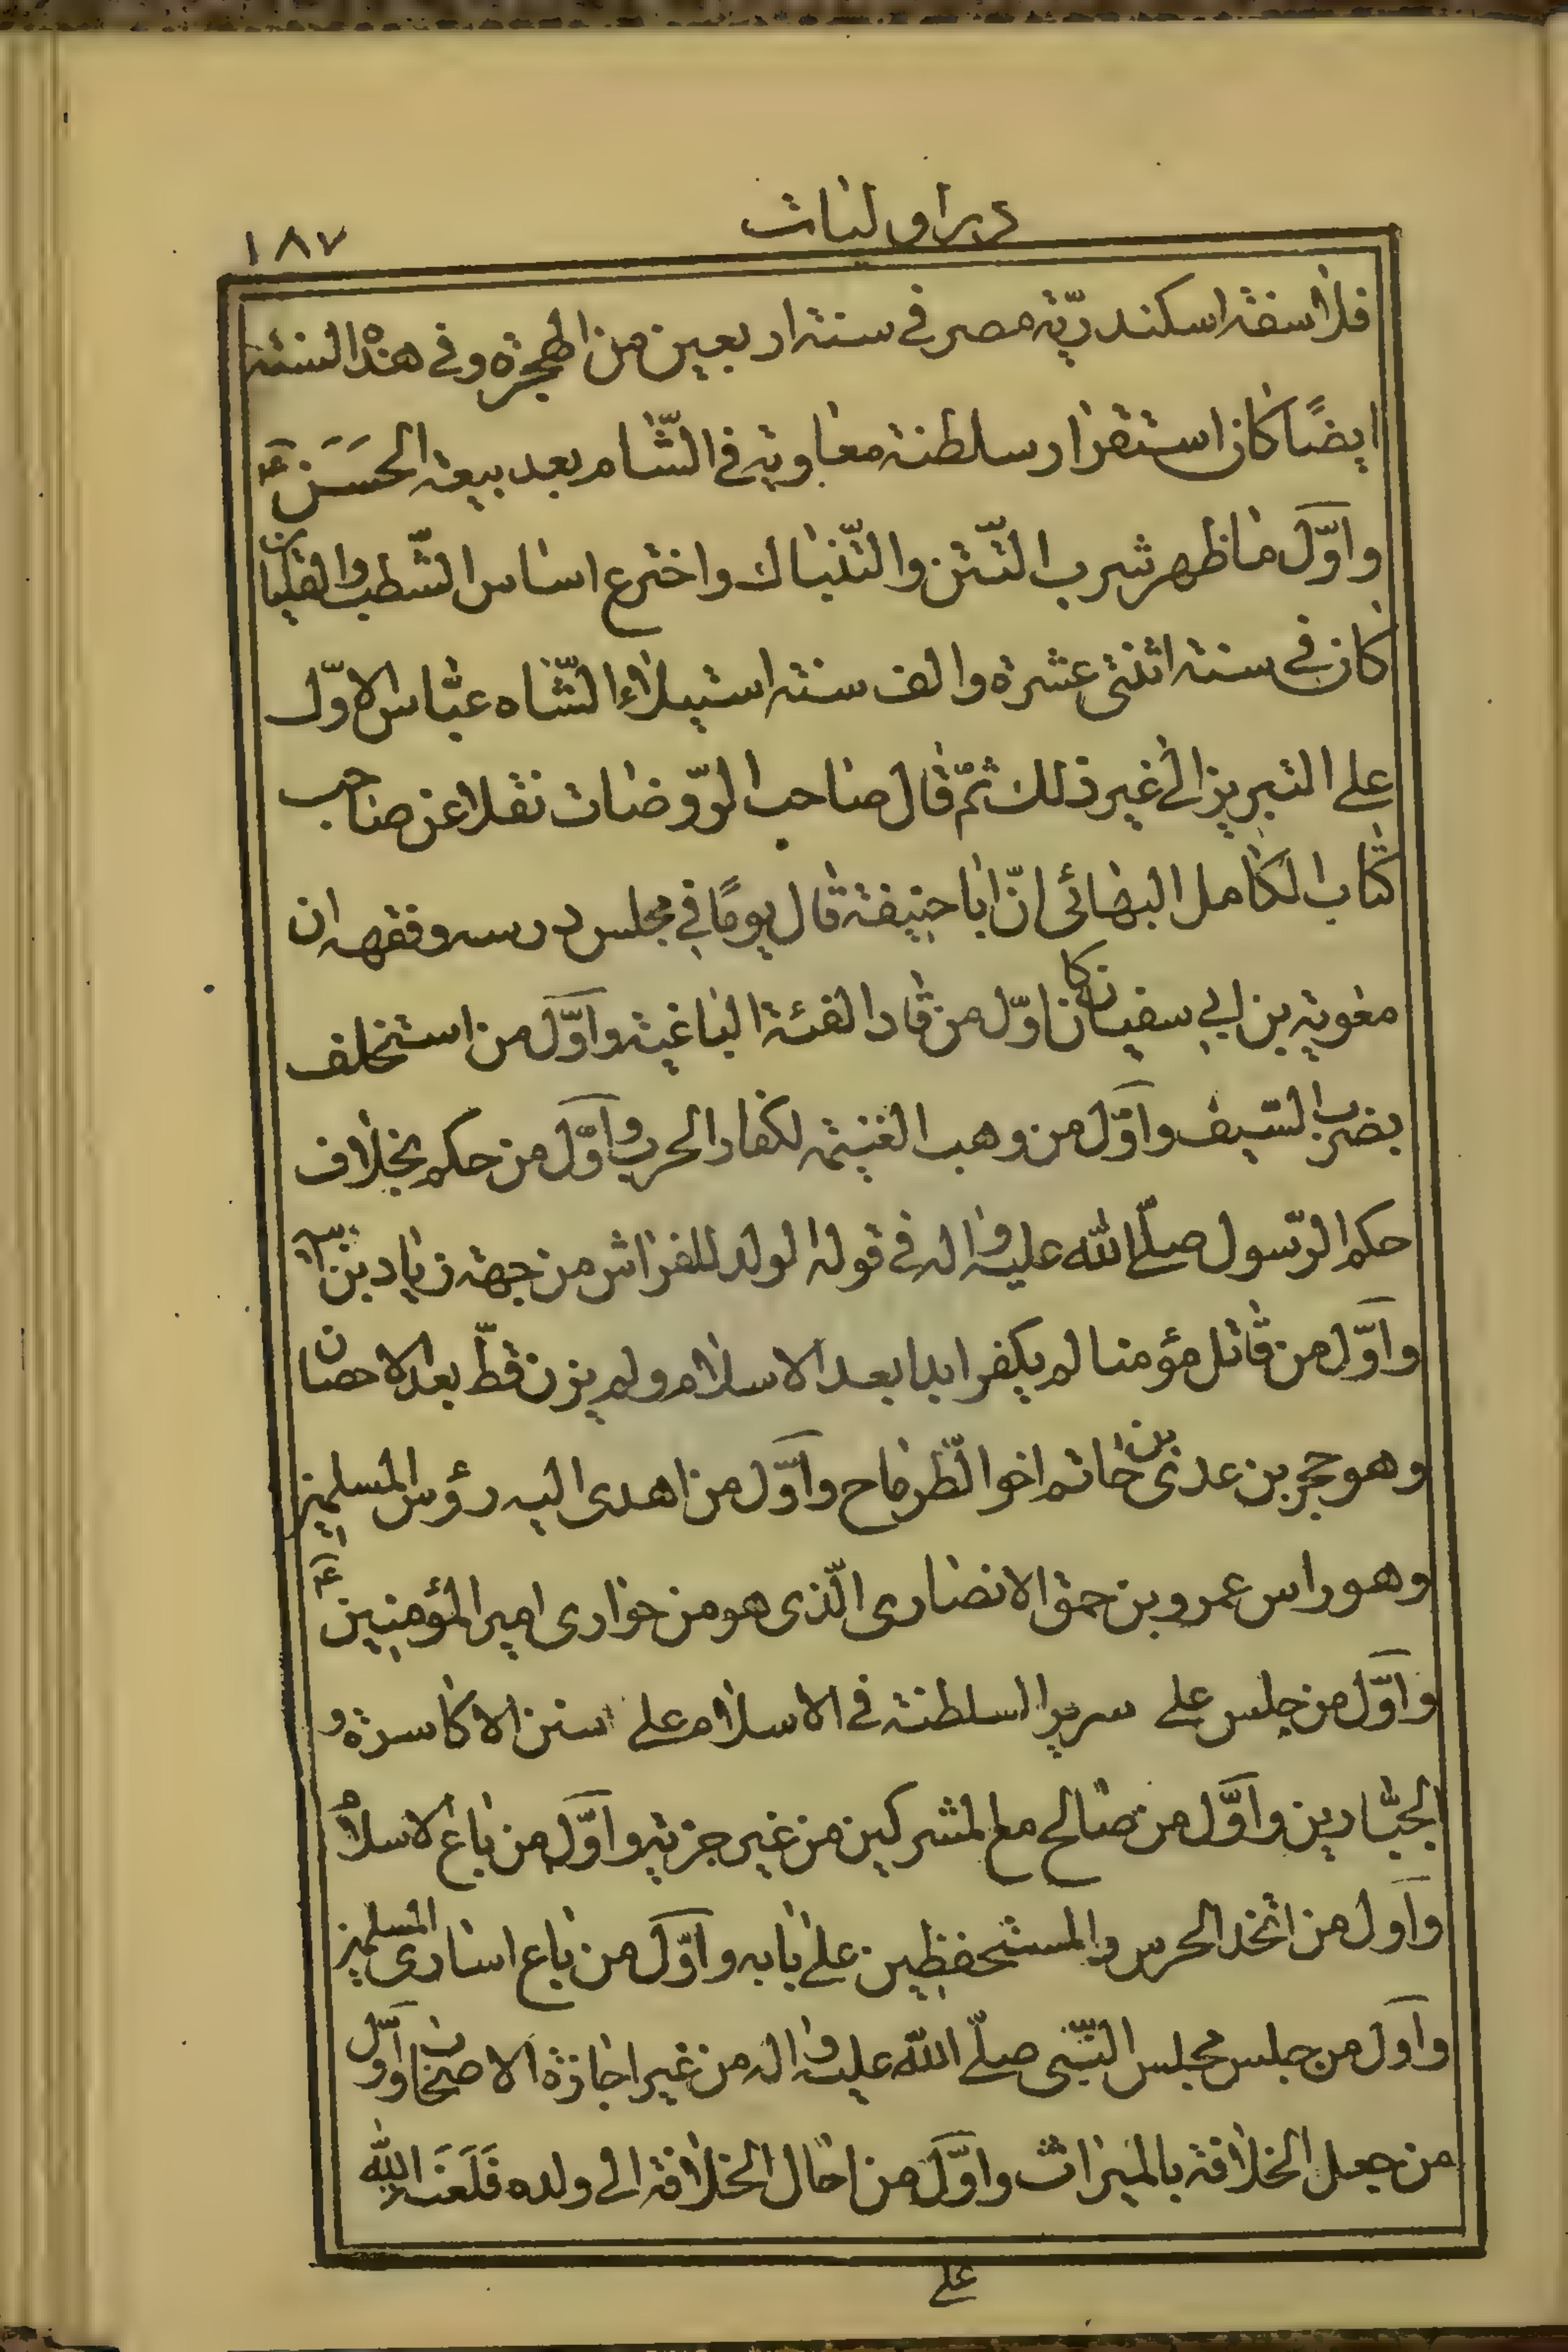 در اولیات
۱۸۷
فلاسفة اسكندریّة مصر فی سنة اربعین من الهجرة و فی هذه السنة
ایضًا كان استقرار سلطنة معاویة فی الشّام بعد بیعة الحَسَن ع
و اوّل ما ظهر شرب التّتن و التّنباك و اخترع اساس الشّطب و القلیان
كان فی سنة اثنتی عشرة و الف سنة استیلاء الشّاه عبّاس الاوّل
علی التبریز الی غیر ذلك ثمّ قال صاحب الرّوضات نقلا عن صاحب
كتاب الكامل البهائی انّ ابا حنیفة قال یومًا فی مجلس درسه و فقهه ان
معویة بن ابی سفیان كان اوّل من قاد الفئة الباغیة و اوّل من استخلف
بضرب السّیف و اوّل من وهب الغنیمة لكفار الحرب و اوّل من حكم بخلاف
حكم الرّسول صلّی الله علیه و اله فی قوله الولد للفراش من جهة زیاد بن ابیه
و اوّل من قاتل مؤمنا لم یكفر ابدا بعد الاسلام و لم یزن قطّ بعد الاحصان
و هو حجر بن عدی بن حاتم اخو الطّرماح و اوّل من اهدی الیه رؤس المسلمین
و هو راس عمرو بن حمق الانصاری الّذی هو من حواری امیر المؤمنین ع
و اوّل من جلس علی سریر السلطنة فی الاسلام علی سنن الاكاسرة و
الجبّارین و اوّل من صالح مع المشركین من غیر جزیة و اوّل من باع الاسلام
و اول من اتخذ الحرس و المستحفظین علی بابه و اوّل من باع اساری المسلمین
و اول من جلس مجلس النّبی صلّی الله علیه و اله من غیر اجازة الاصحاب و اوّل
من جعل الخلافة بالمیراث و اوّل من احال الخلافة الی ولده فَلَعَنَ الله
علی